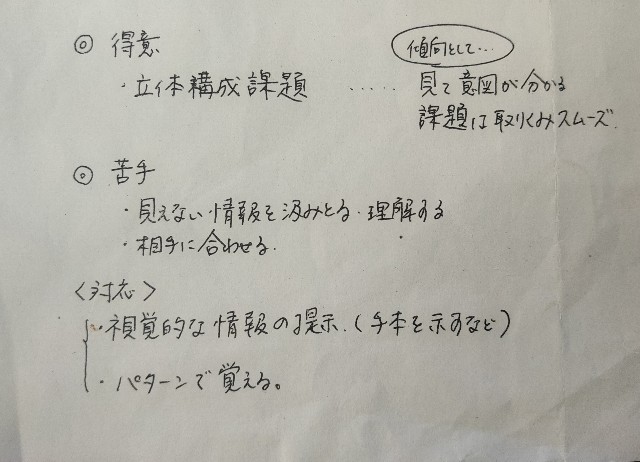 ◎ 得意
傾向として…
・立体構成課題 ‥‥‥ 見て意図が分かる
課題は取りくみスムーズ.
◎ 苦手
・見えない情報を汲みとる・理解する
・相手に合わせる.
〈対応〉
・視覚的な情報の提示.(手本を示すなど)
・パターンで覚える。